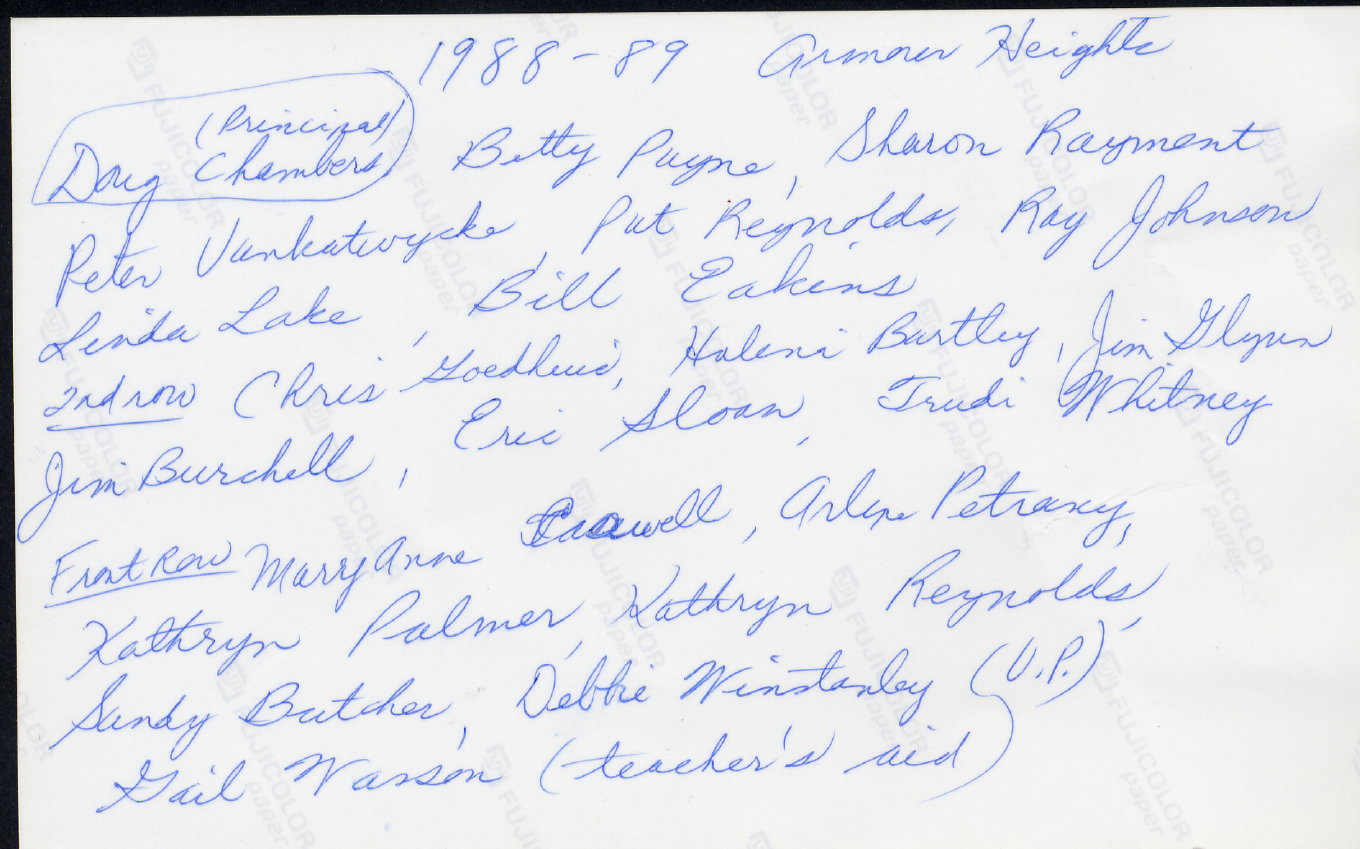 1988-89 Armour Heights
(Principal)
Doug Chambers Betty Payne, Sharon Rayment
Peter Vankatwycke, Pat Reynolds, Ray Johnson
Linda Lake, Bill Eakins
2nd row Chris Goedhuis, Halena Bartley, Jim Glynn
Jim Burchell, Eric Sloan, Trudi Whitney
Front Row Mary Anne, Arlene Petraxy,
Kathryn Palmer, Kathryn Reynolds,
Sandy Butcher, Debbie Winstanley (V.P.)
Gail Wasson (teacher's aid)
FUJICOLOR
paper